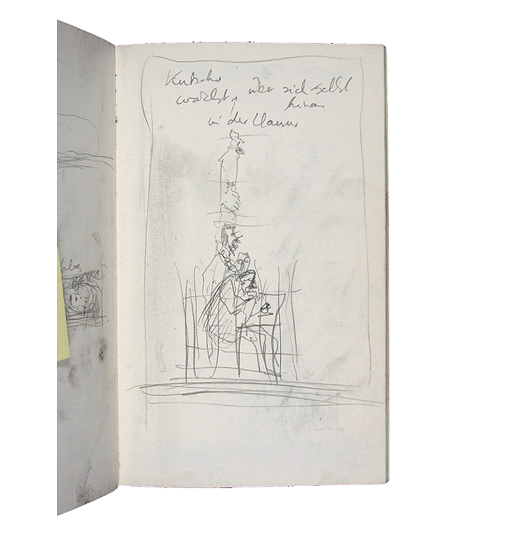 Kutscher
wächst, über sich selbst
hinaus
in der Klausur